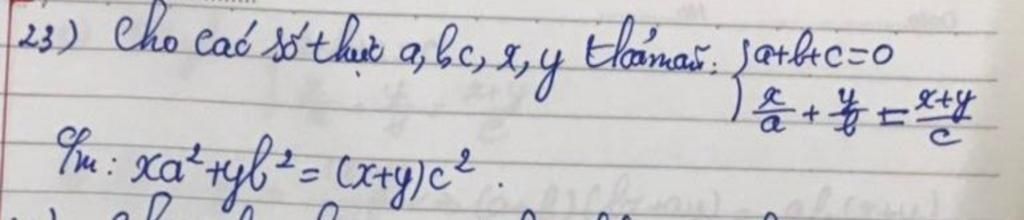 23) Cho các số thực a, b c, x, y thỏa mãn: { a+b+c=0
x/a + y/b = x+y/c
Cm: xa² + yb² = (x+y)c².